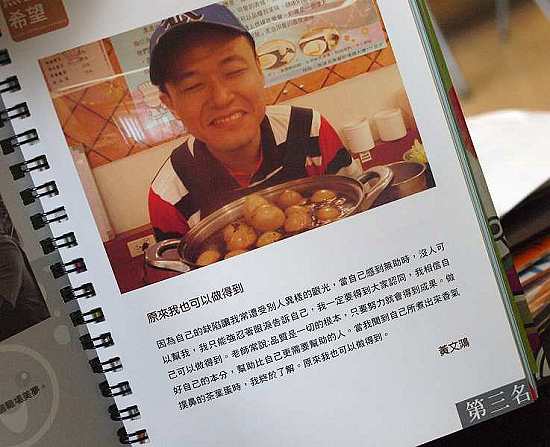 希望
原來我也可以做得到
因為自己的缺陷讓我常遭受別人異樣的眼光，當自己感到無助時，沒人可
以幫我，我只能強忍著眼淚告訴自己，我一定要得到大家認同，我相信自
己可以做得到。老師常說:品質是一切的根本，只要努力就會得到成果。做
好自己的本分，幫助比自己更需要幫助的人。當我聞到自己所煮出來香氣
撲鼻的茶葉蛋時，我終於了解。原來我也可以做得到。
黃文鴻
第三名